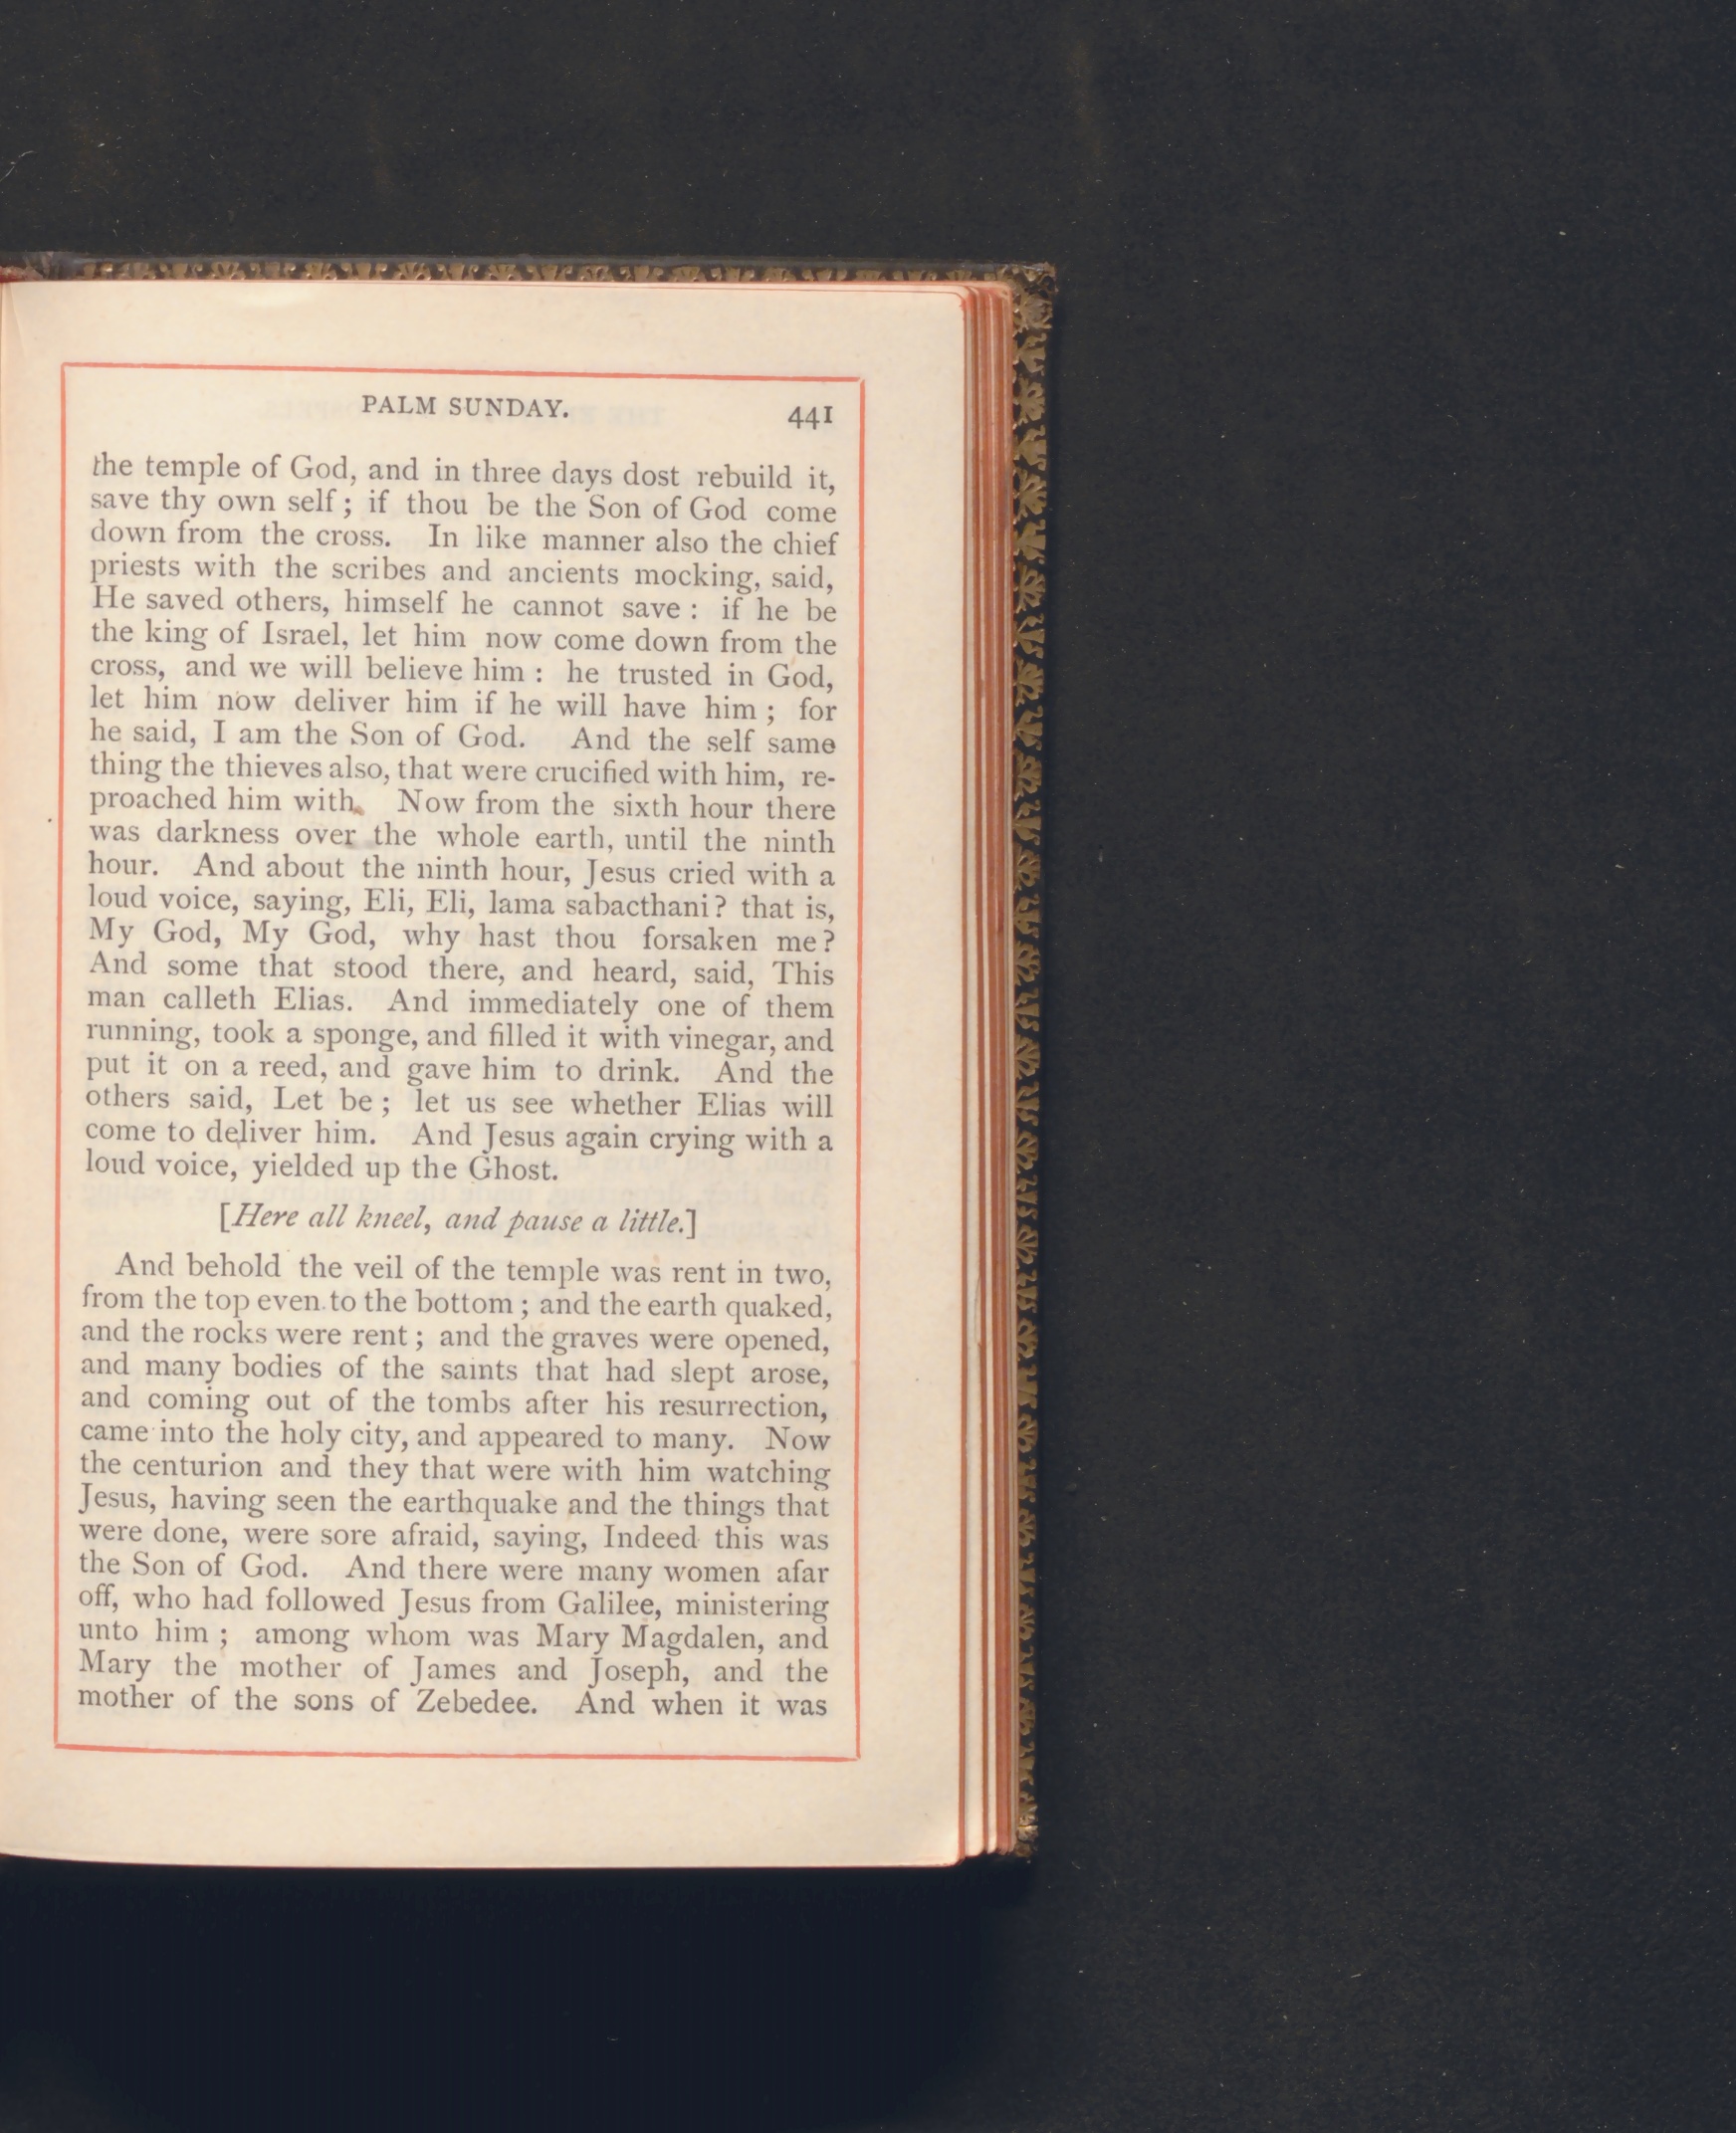 PALM SUNDAY. 441
the temple of God, and in three days dost rebuild it,
save thy own self; if thou be the Son of God come
down from the cross. In like manner also the chief
priests with the scribes and ancients mocking, said,
He saved others, himself he cannot save: if he be
the king of Israel, let him now come down from the
cross, and we will believe him: he trusted in God,
let him now deliver him if he will have him; for
he said, I am the Son of God. And the self same
thing the thieves also, that were crucified with him, re-
proached him with. Now from the sixth hour there
was darkness over the whole earth, until the ninth
hour. And about the ninth hour, Jesus cried with a
loud voice, saying, Eli, Eli, lama sabacthani? that is,
My God, My God, why hast thou forsaken me?
And some that stood there, and heard, said, This
man calleth Elias. And immediately one of them
running, took a sponge, and filled it with vinegar, and
put it on a reed, and gave him to drink. And the
others said, Let be; let us see whether Elias will
come to deliver him. And Jesus again crying with a
loud voice, yielded up the Ghost.
[Here all kneel, and pause a little.]
And behold the veil of the temple was rent in two,
from the top even to the bottom; and the earth quaked,
and the rocks were rent; and the graves were opened,
and many bodies of the saints that had slept arose,
and coming out of the tombs after his resurrection,
came into the holy city, and appeared to many. Now
the centurion and they that were with him watching
Jesus, having seen the earthquake and the things that
were done, were sore afraid, saying, Indeed this was
the Son of God. And there were many women afar
off, who had followed Jesus from Galilee, ministering
unto him; among whom was Mary Magdalen, and
Mary the mother of James and Joseph, and the
mother of the sons of Zebedee. And when it was